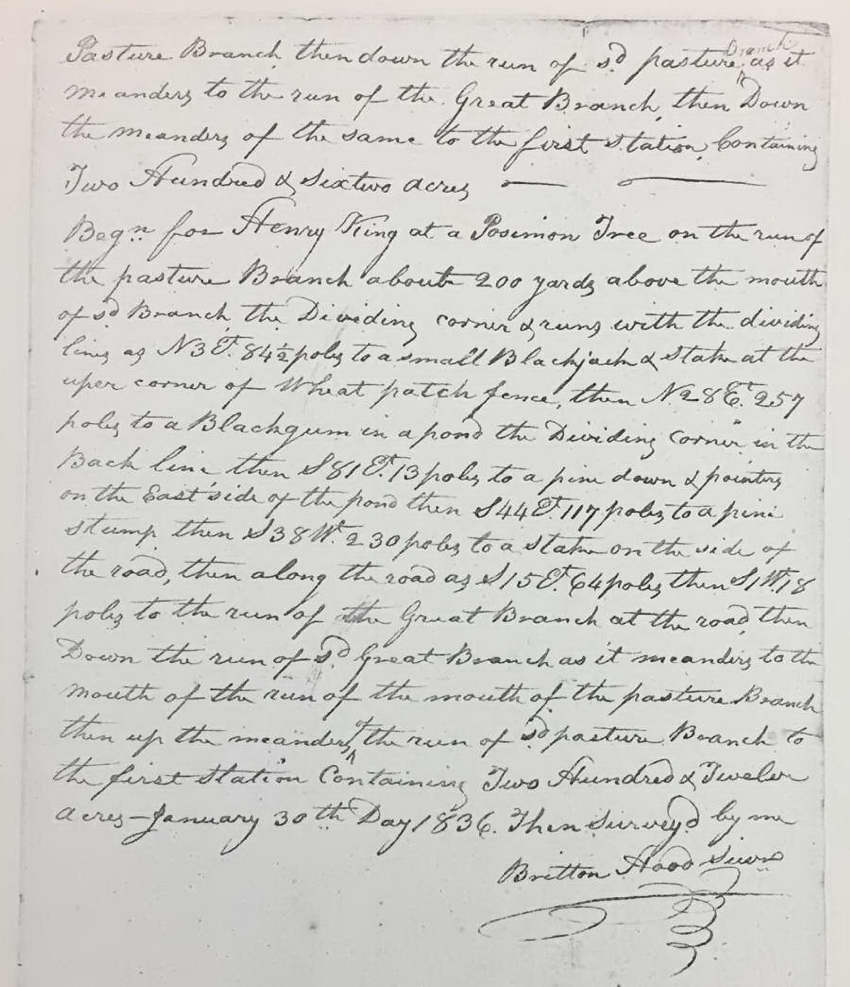 Pasture Branch then down the run of sd pasture Branch as it
meanders to the run of the Great Branch, then Down
the meanders of the same to the first station, Containing
Two Hundred & sixtwo acres
Begn for Henry King at a Posimon Tree on the run of
the pasture Branch about 200 yards above the mouth
of sd Branch the Dividing corner & runs with the dividing
lines as N3Et. 84½ poles to a small Blackjack & stake at the
uper corner of Wheat patch fence, then N.28Et. 257
poles to a Blackgum in a pond the Dividing Corner in the
Back line then S81Et. 13 poles to a pine down & pointers
on the East side of the pond then S44Et. 117 poles to a pine
stump then S38Wt. 230 poles to a stake on the side of
the road, then along the road as S15Et. 64 poles then S1Wt. 18
poles to the run of the Great Branch at the road, then
Down the run of sd Great Branch as it meanders to the
mouth of the run of the mouth of the pasture Branch
then up the meanders of the run of sd pasture Branch to
the first station Containing Two Hundred & Twelve
acres—January 30th Day 1836. Then Survey'd by me
Britton Hood Survr